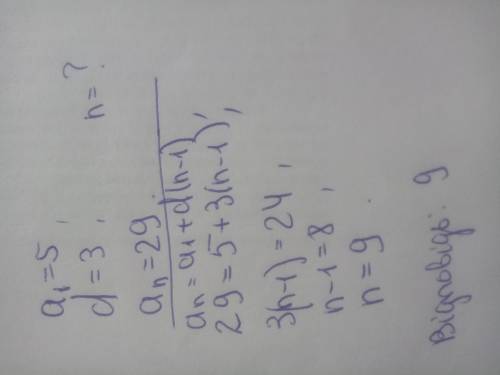 a₁=5,
d=3, n=?
aₙ=29.
aₙ=a₁+d(n-1),
29=5+3(n-1),
3(n-1)=24,
n-1=8,
n=9.
Відповідь: 9